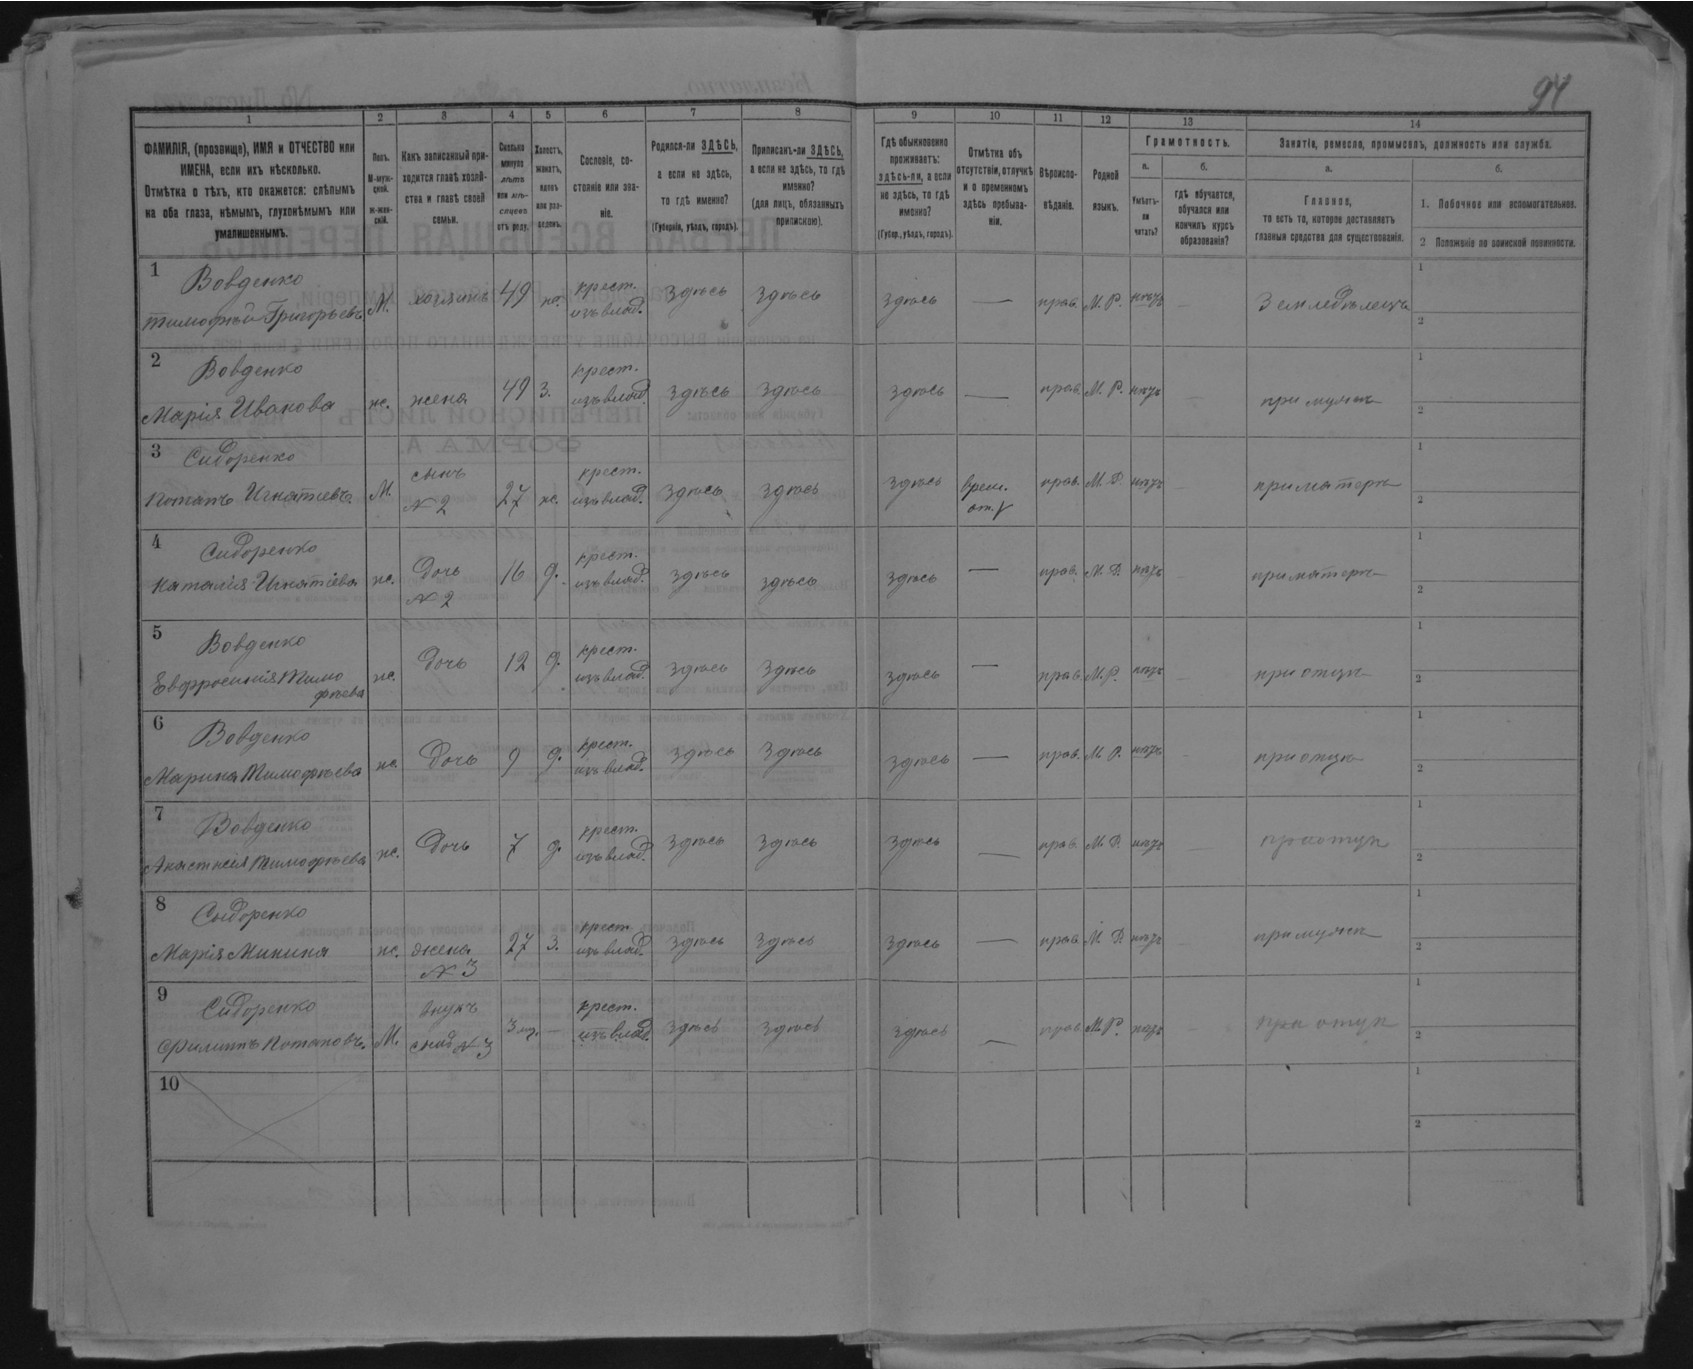 94
1
2
3
4
5
6
7
8
9
10
11
12
13
14
ФАМИЛІЯ, (прозвище), ИМЯ и ОТЧЕСТВО или
ИМЕНА, если ихъ нѣсколько.
Отмѣтка о тѣхъ, кто окажется: слѣпымъ
на оба глаза, нѣмымъ, глухонѣмымъ или
умалишеннымъ.
Полъ.
М-муж-
ской.
ж-жен-
скій.
Какъ записанный при-
ходится главѣ хозяй-
ства и главѣ своей
семьи.
Сколько
минуло
лѣтъ
или мѣ-
сяцевъ
отъ роду.
Холостъ,
женатъ,
вдовъ
или раз-
веденъ.
Сословіе, со-
стояніе или зва-
ніе.
Родился-ли ЗДѢСЬ,
а если не здѣсь,
то гдѣ именно?
(Губернія, уѣздъ, городъ).
Приписанъ-ли ЗДѢСЬ,
а если не здѣсь, то гдѣ
именно?
(для лицъ, обязанныхъ
припискою).
Гдѣ обыкновенно
проживаетъ:
здѣсь-ли, а если
не здѣсь, то гдѣ
именно?
(Губер., уѣздъ, городъ).
Отмѣтка объ
отсутствіи, отлучкѣ
и о временномъ
здѣсь пребыва-
ніи.
Вѣроиспо-
вѣданіе.
Родной
языкъ.
Грамотность.
а.
б.
Умѣетъ-
ли
читать?
гдѣ обучается,
обучался или
кончилъ курсъ
образованія?
Занятіе, ремесло, промыселъ, должность или служба.
а.
б.
Главное,
то есть то, которое доставляетъ
главныя средства для существованія.
1. Побочное или вспомогательное.
2 Положеніе по воинской повинности.
1
Вовденко
Тимофѣй Григорьевъ
М.
хозяинъ
49
ж.
крест.
изъ влад.
здѣсь
здѣсь
здѣсь
—
прав.
М. Р.
нѣтъ
Земледѣлецъ
1
2
2
Вовденко
Марія Иванова
ж.
жена
49
з.
крест.
изъ влад.
здѣсь
здѣсь
здѣсь
—
прав.
М. Р.
нѣтъ
при мужѣ
1
2
3
Сидоренко
Потапъ Игнатіевъ
М.
сынъ
№ 2
27
ж.
крест.
изъ влад.
здѣсь
здѣсь
здѣсь
врем.
от.
прав.
М. Р.
нѣтъ
при матери
1
2
4
Сидоренко
Наталія Игнатіева
ж.
дочь
№ 2
16
д.
крест.
изъ влад.
здѣсь
здѣсь
здѣсь
—
прав.
М. Р.
нѣтъ
при матери
1
2
5
Вовденко
Евфросинія Тимо
фѣева
ж.
дочь
12
д.
крест.
изъ влад.
здѣсь
здѣсь
здѣсь
—
прав.
М. Р.
нѣтъ
при отцѣ
1
2
6
Вовденко
Марина Тимофѣева
ж.
дочь
9
д.
крест.
изъ влад.
здѣсь
здѣсь
здѣсь
—
прав.
М. Р.
нѣтъ
при отцѣ
1
2
7
Вовденко
Анастасія Тимофѣева
ж.
дочь
7
д.
крест.
изъ влад.
здѣсь
здѣсь
здѣсь
—
прав.
М. Р.
нѣтъ
при отцѣ
1
2
8
Сидоренко
Марія Минина
ж.
жена
№ 3
27
з.
крест.
изъ влад.
здѣсь
здѣсь
здѣсь
—
прав.
М. Р.
нѣтъ
при мужѣ
1
2
9
Сидоренко
Филиппъ Потаповъ
М.
внукъ
№ 3
3
—
крест.
изъ влад.
здѣсь
здѣсь
здѣсь
—
прав.
М. Р.
нѣтъ
при отцѣ
1
2
10
1
2